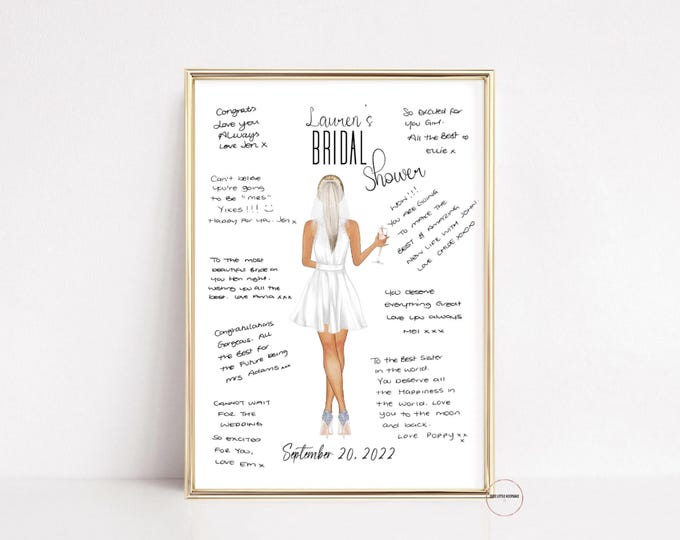 Lauren's
BRIDAL
Shower
Congrats
Love you
Always
Love Jen x
Can't believe
you're going
to Be "mrs"
Yikes!!!
Happy for you. Jen x
To the most
beautiful Bride on
you Hen night.
Wishing you all the
best. Love Anna xxx
Congratulations
Gorgeous. All
the Best for
the Future being
Mrs Adams xxx
CANNOT WAIT
FOR THE
WEDDING
SO EXCITED
FOR YOU,
LOVE Em x
So excited for
you Girl.
All the Best
Ellie x
WOW!!!
YOU ARE GOING
TO MAKE THE
BEST & AMAZING
NEW LIFE WITH JOHN.
LOVE CHLOE XOXOXO
You deserve
everything Great
Love you always
Mel x x x
To the Best Sister
in the world.
You Deserve all
the Happiness in
the world. Love
you to the moon
and back.
Love Poppy xx
September 20, 2022